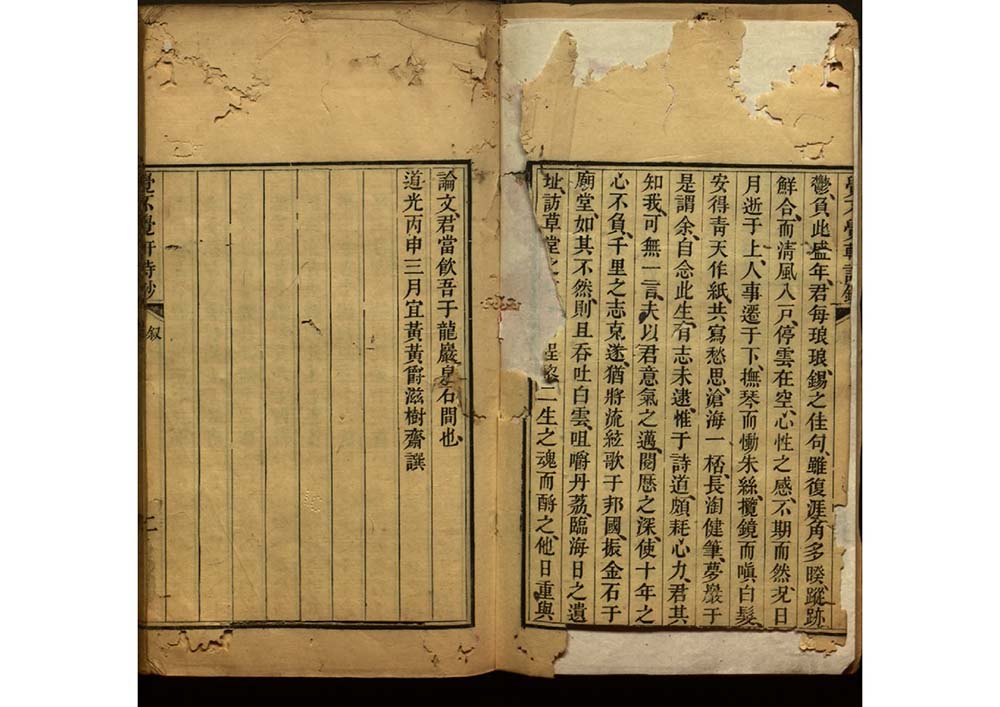 鬱、負此盛年、君每琅琅、錫之佳句、雖復涯角多暌、蹤跡
鮮合、而淸風入戸、停雲在空、心性之感、不期而然、况日
月逝于上、人事遷于下、撫琴而慟朱絲、攬鏡而嗔白髮、
安得靑天作紙、共寫愁思、滄海一栝、長淘健筆、夢巖于
是謂余、自念此生、有志未逮、惟于詩道、頗耗心力、君其
知我、可無一言、夫以君意氣之邁、閱歷之深、使十年之
心不負、千里之志克遂、猶將流絃歌于邦國、振金石于
廟堂、如其不然、則且吞吐白雲、咀嚼丹荔、臨海日之遺
址、訪草堂之 二生之魂而酹之、他日重與
論文、君當飮吾于龍巖 石間也、
道光丙申三月宜黃黃爵滋樹齋譔
覺不覺軒詩鈔
叙
二